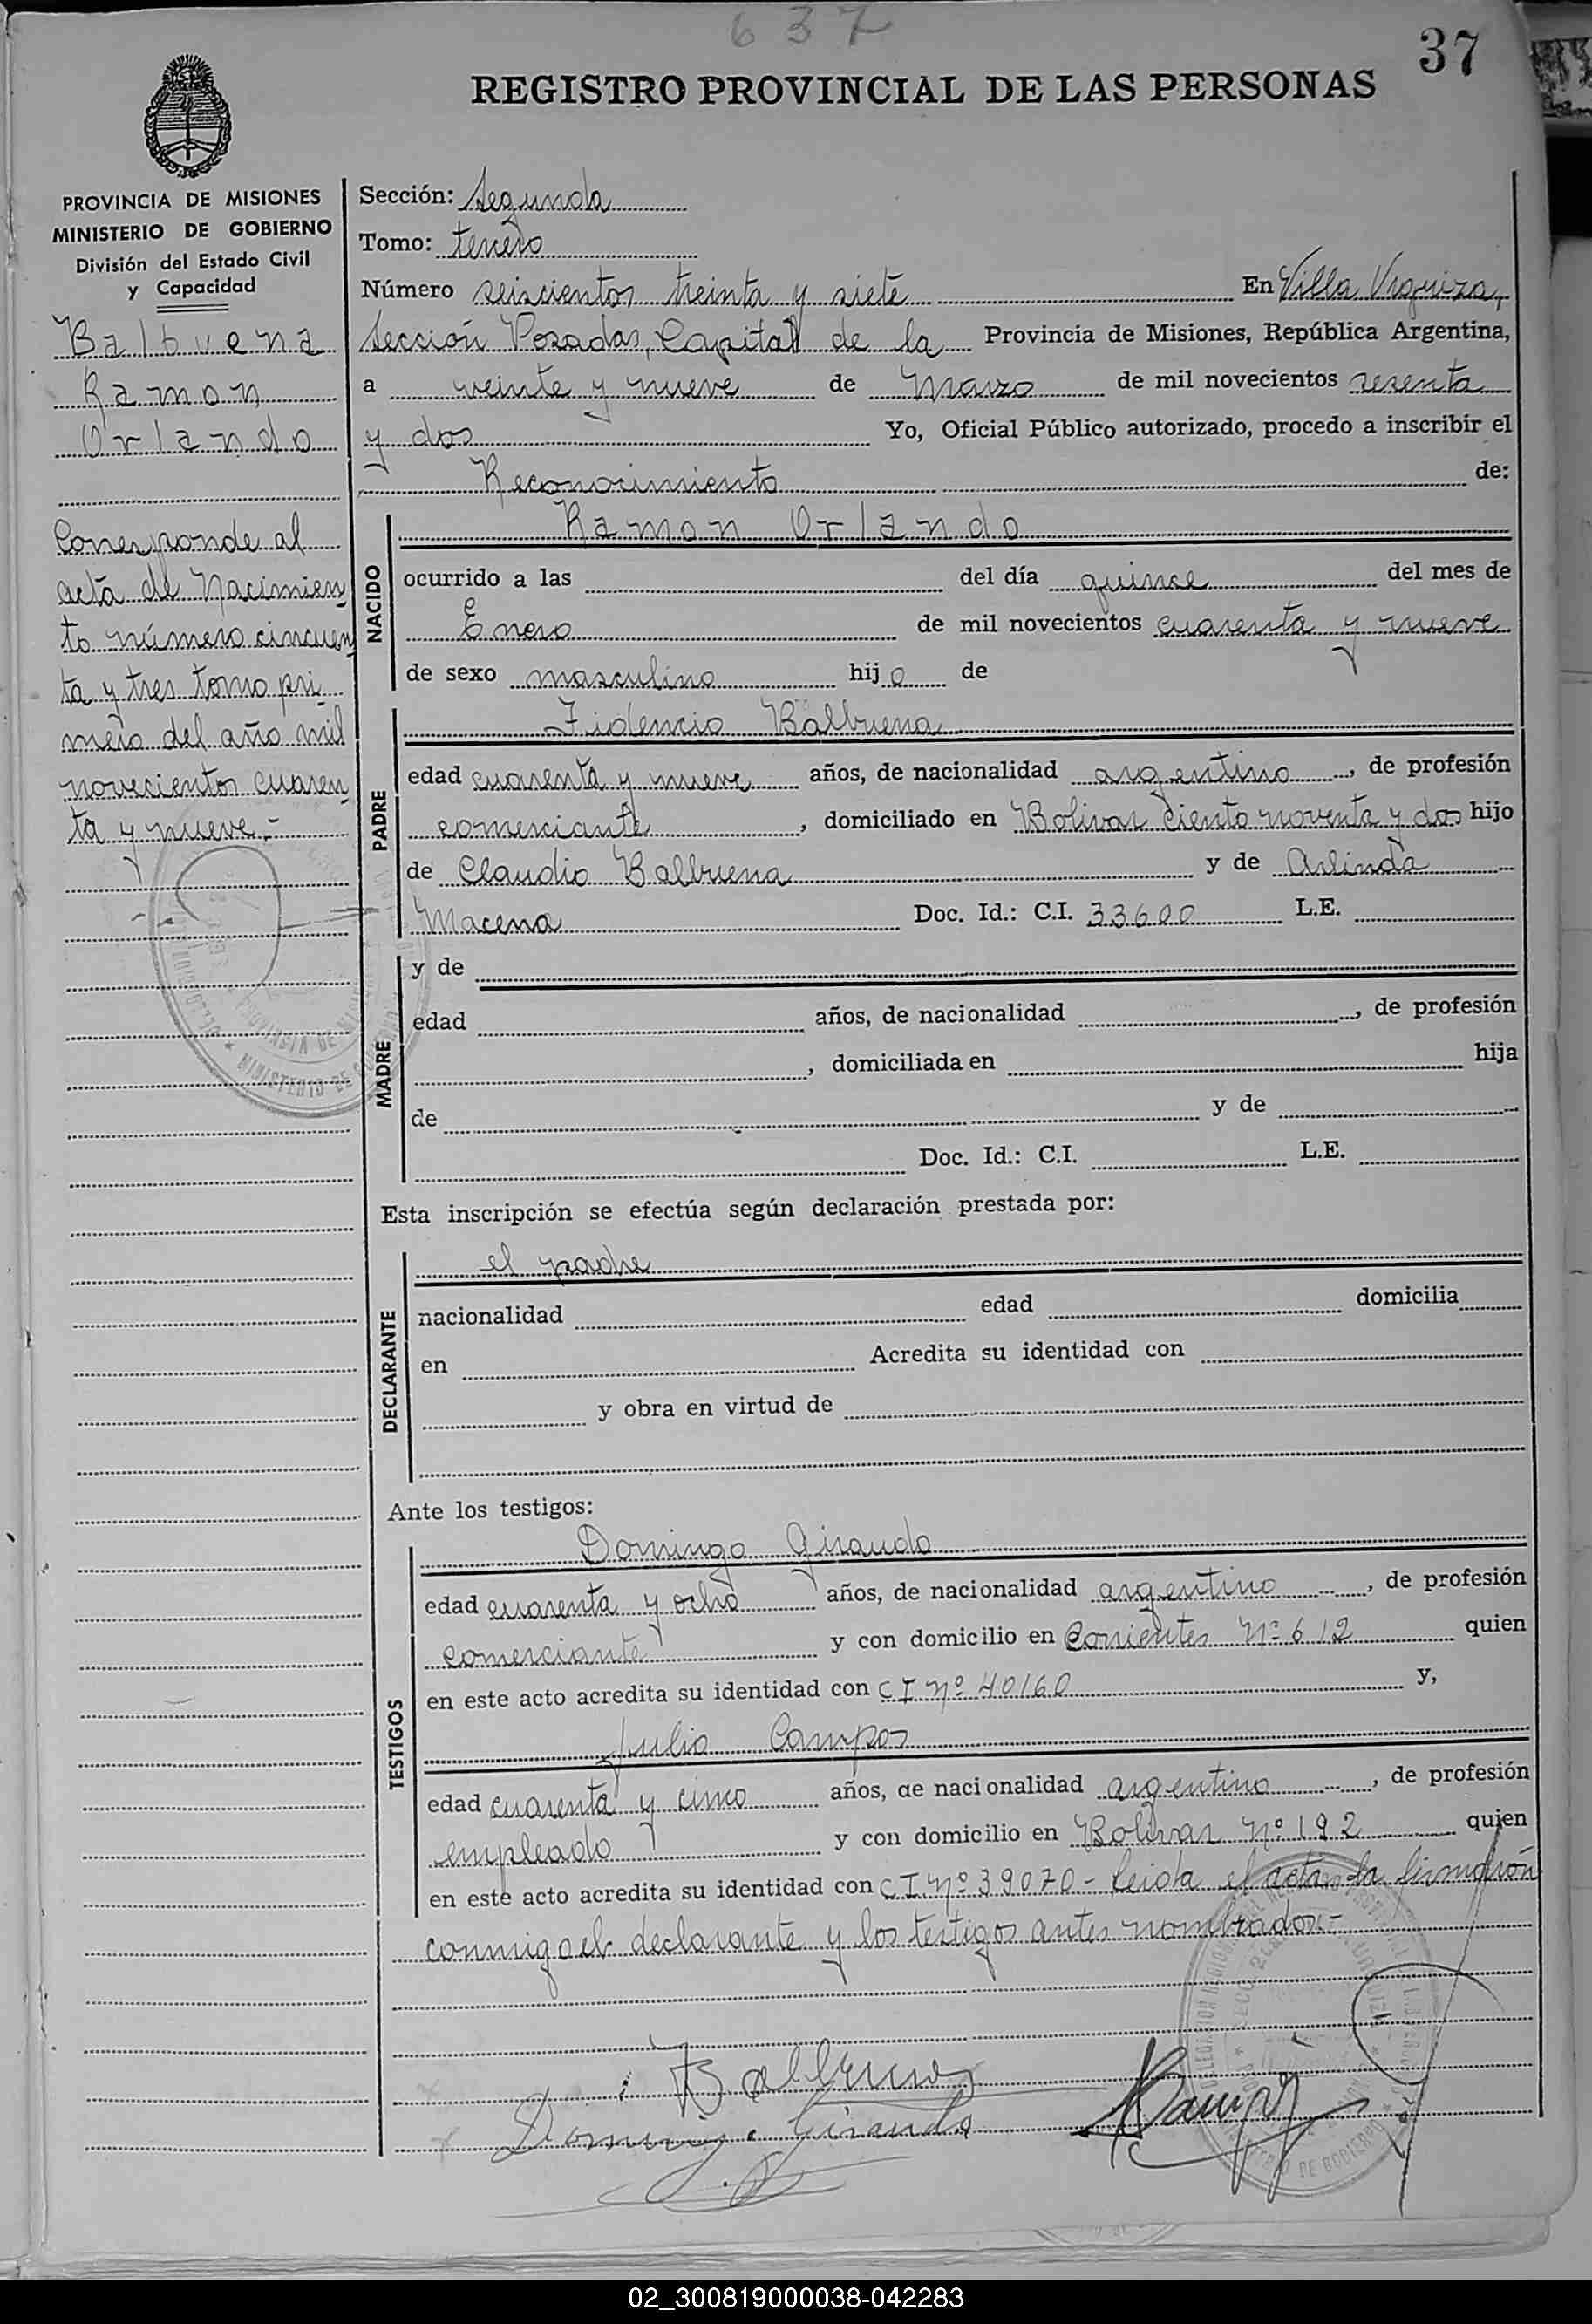 637
37
REGISTRO PROVINCIAL DE LAS PERSONAS
PROVINCIA DE MISIONES
MINISTERIO DE GOBIERNO
División del Estado Civil
y Capacidad
Balbuena
Ramon
Orlando
Corresponde al
acta de Nacimien
to número cincuen
ta y tres tomo pri
mero del año mil
novecientos cuaren
ta y nueve.-
Sección: Segunda
Tomo: tercero
Número seiscientos treinta y siete En Villa Urquiza,
Sección Posadas, Capital de la Provincia de Misiones, República Argentina,
a veinte y nueve de Marzo de mil novecientos sesenta
y dos Yo, Oficial Público autorizado, procedo a inscribir el
Reconocimiento de:
NACIDO
Ramon Orlando
ocurrido a las del día quince del mes de
Enero de mil novecientos cuarenta y nueve
de sexo masculino hijo de
PADRE
Fidencio Balbuena
edad cuarenta y nueve años, de nacionalidad argentino, de profesión
comerciante, domiciliado en Bolivar ciento noventa y dos hijo
de Claudio Balbuena y de Arlinda
Macena Doc. Id.: C.I. 33600 L.E.
MADRE
y de
edad años, de nacionalidad , de profesión
, domiciliada en hija
de y de
Doc. Id.: C.I. L.E.
Esta inscripción se efectúa según declaración prestada por:
DECLARANTE
el padre
nacionalidad edad domicilia
en Acredita su identidad con
y obra en virtud de
Ante los testigos:
TESTIGOS
Domingo Giraudo
edad cuarenta y ocho años, de nacionalidad argentino, de profesión
comerciante y con domicilio en Corrientes Nº 612 quien
en este acto acredita su identidad con C I Nº 40160 y,
Julio Campos
edad cuarenta y cinco años, de nacionalidad argentino, de profesión
empleado y con domicilio en Bolivar Nº 192 quien
en este acto acredita su identidad con C I Nº 39070 - Leida el acta la firmaron
conmigo el declarante y los testigos antes nombrados.-
Balbuena
Domingo Giraudo
02_300819000038-042283